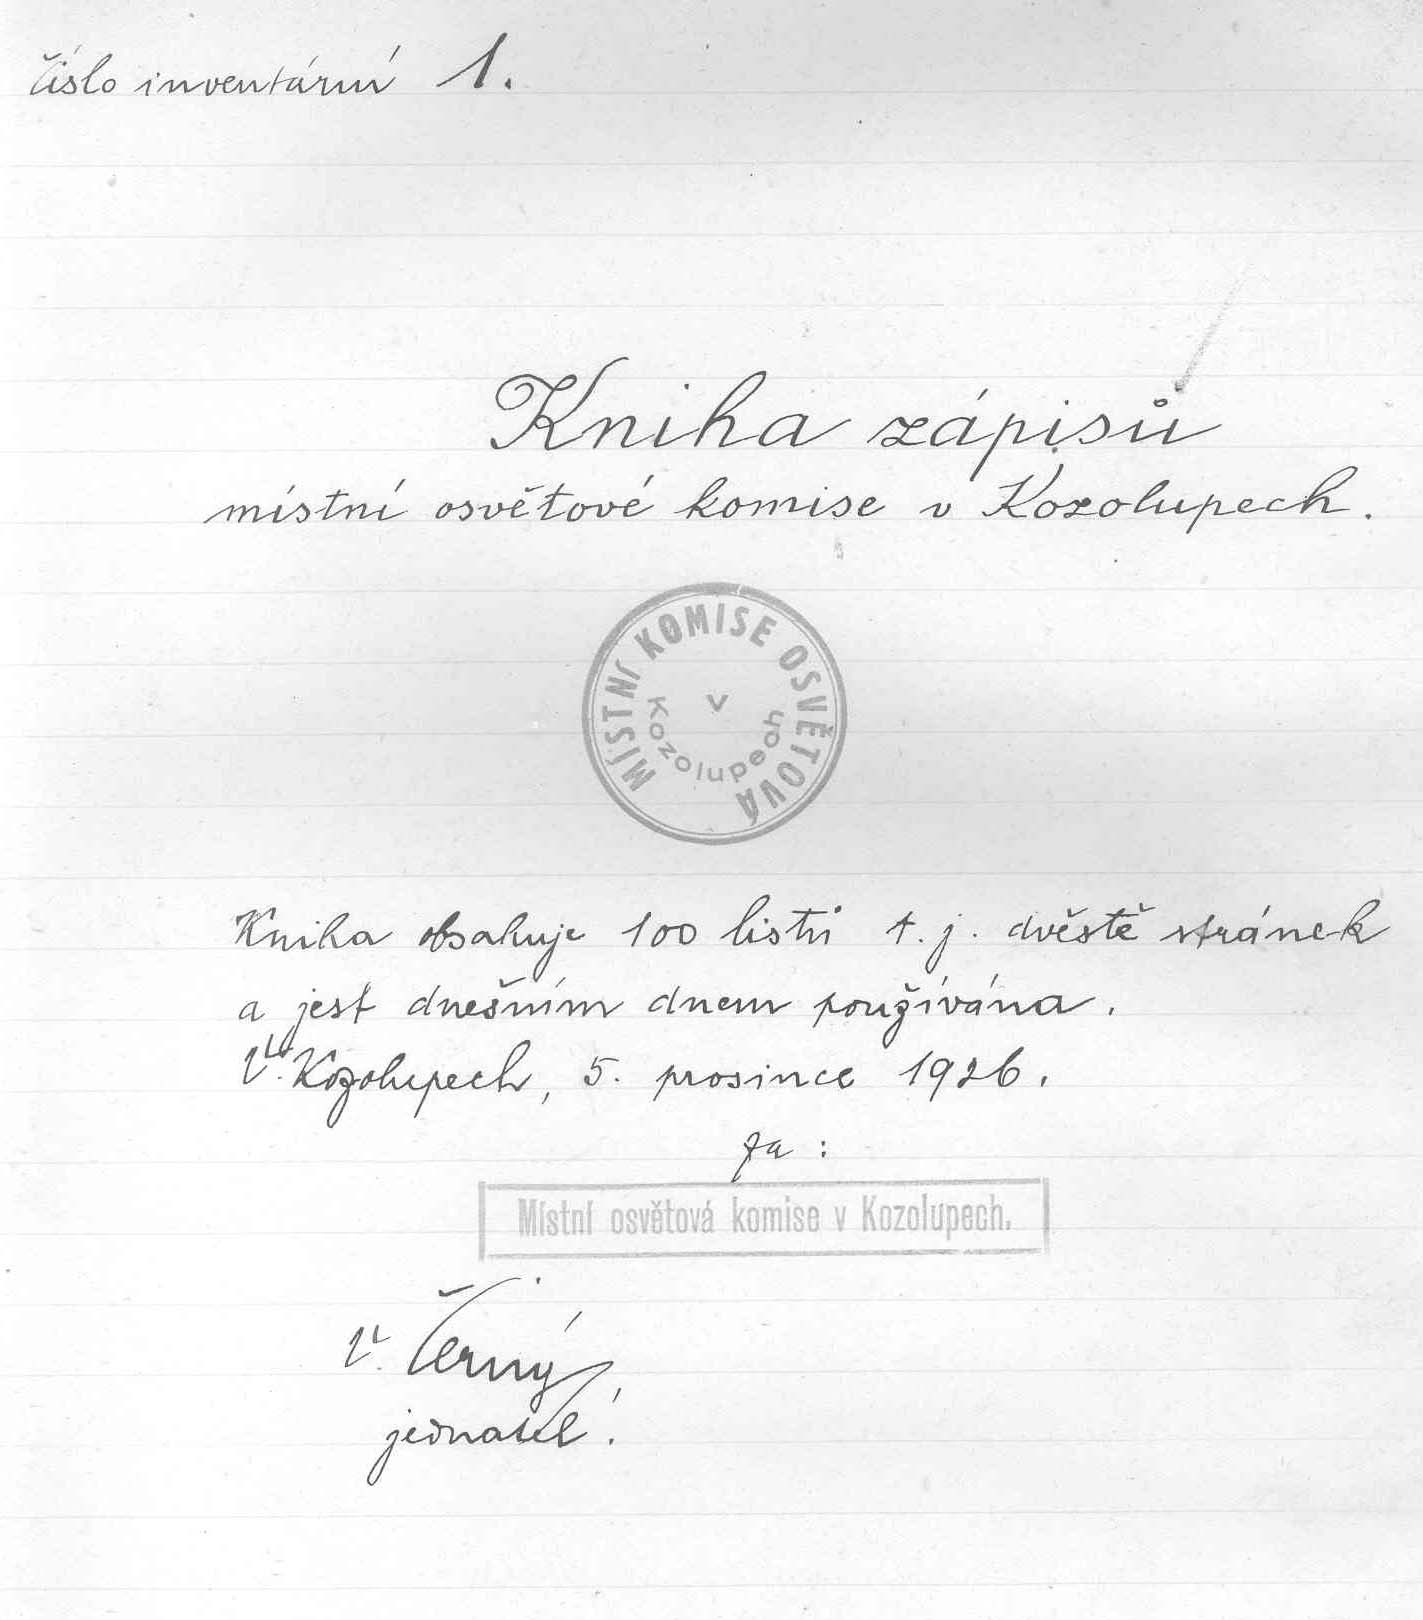 číslo inventární 1.
Kniha zápisů
místní osvětové komise v Kozolupech.
MÍSTNÍ KOMISE OSVĚTOVÁ
v
Kozolupech
Kniha obsahuje 100 listů t. j. dvěstě stránek
a jest dnešním dnem používána.
V Kozolupech, 5. prosince 1926.
Za :
Místní osvětová komise v Kozolupech.
V. Černý
jednatel.